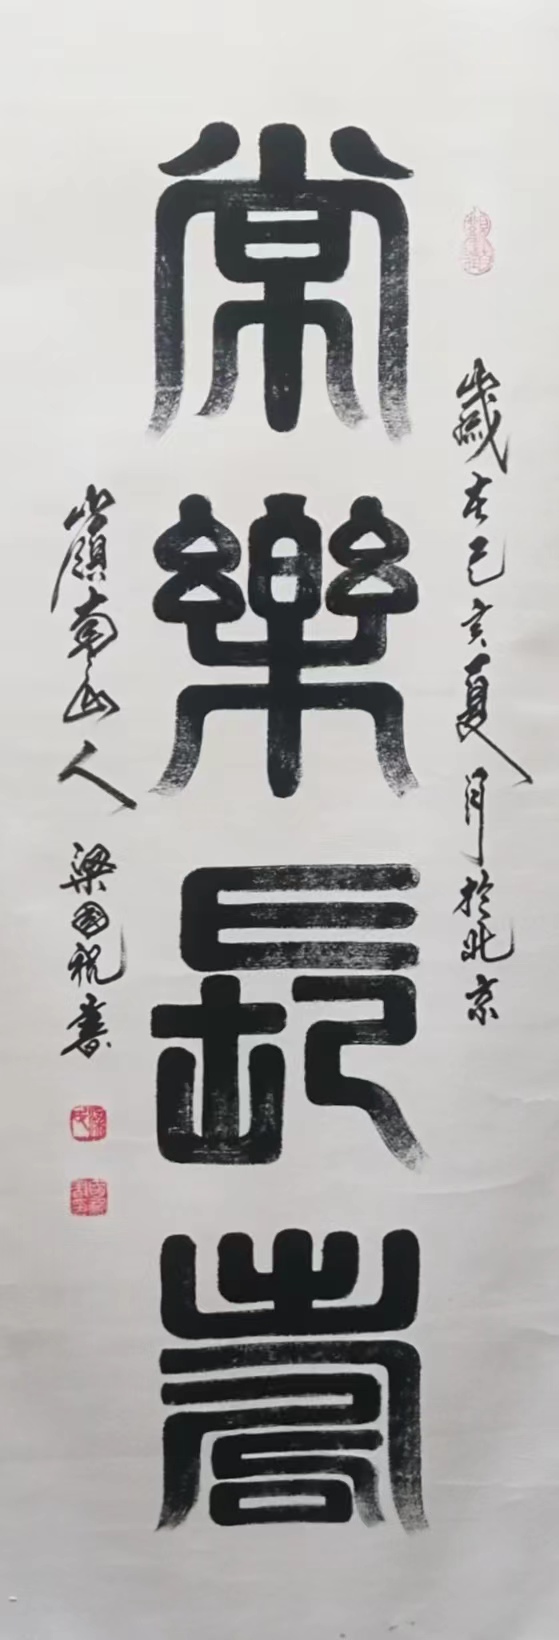 歲在己亥夏月於北京
常樂長壽
嶺南山人梁國祝書